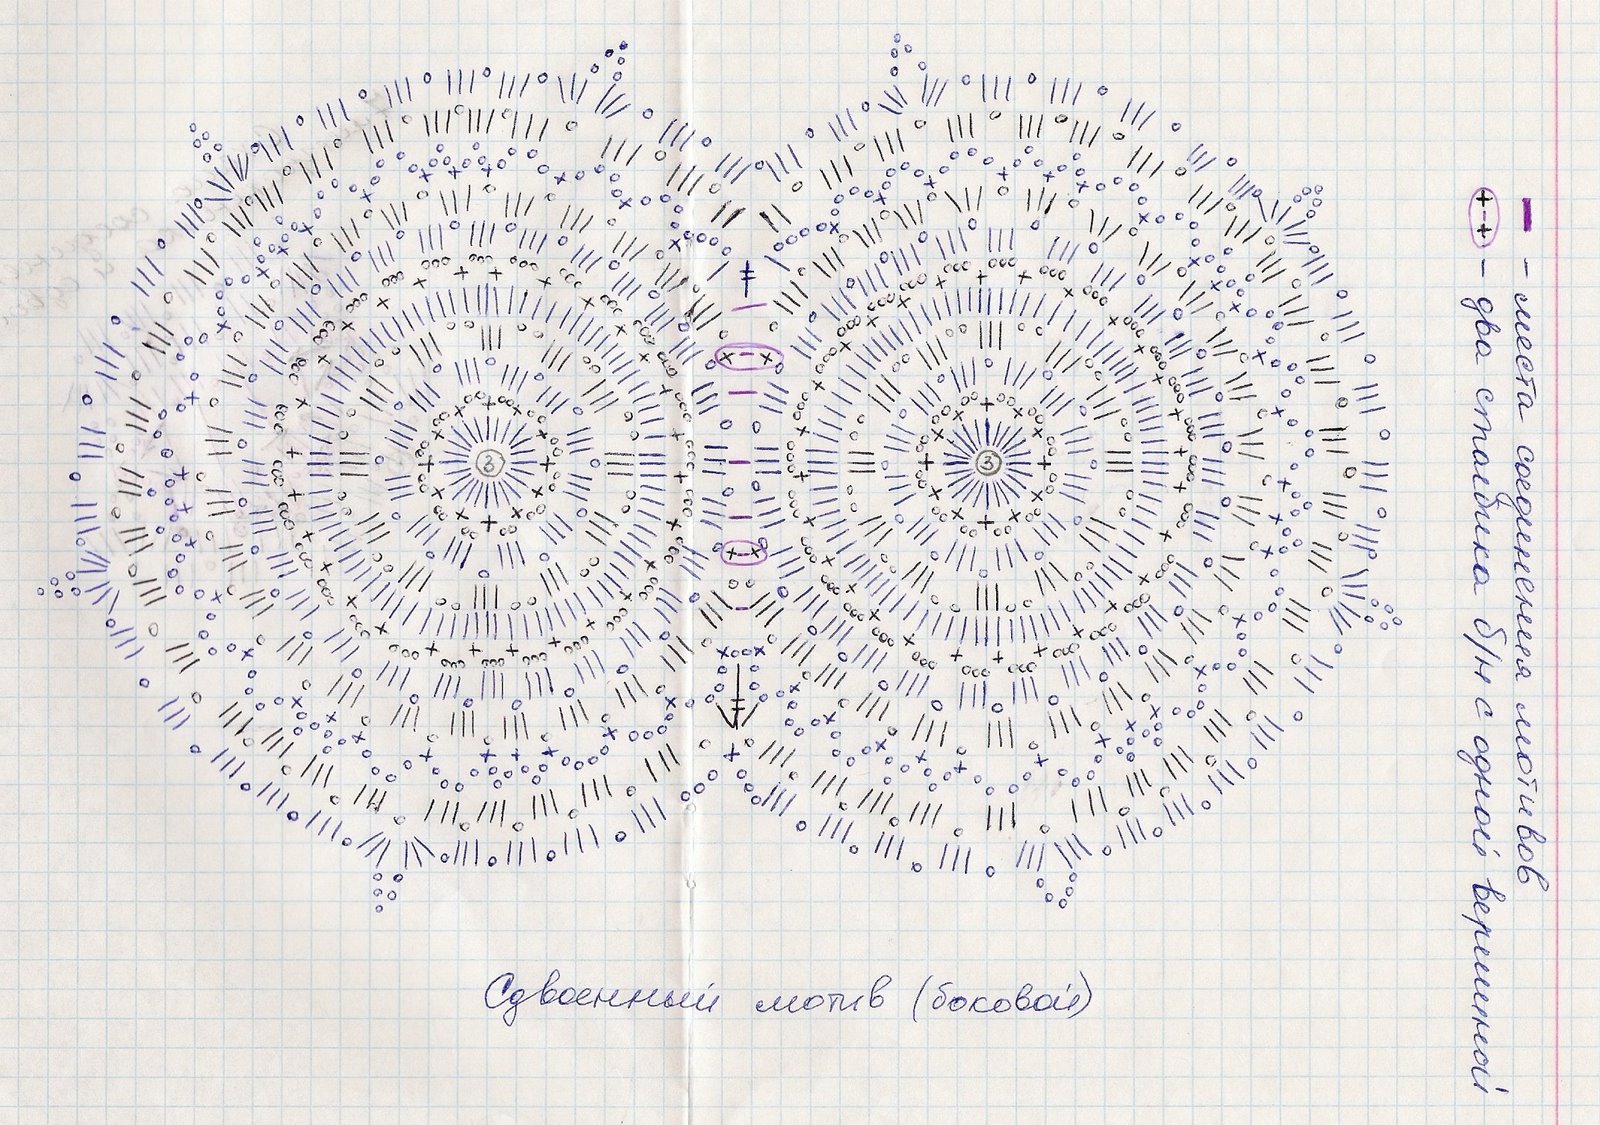 3
3
Сдвоенный мотив (боковой)
- места соединения мотивов
- два столбика б/н с одной вершиной